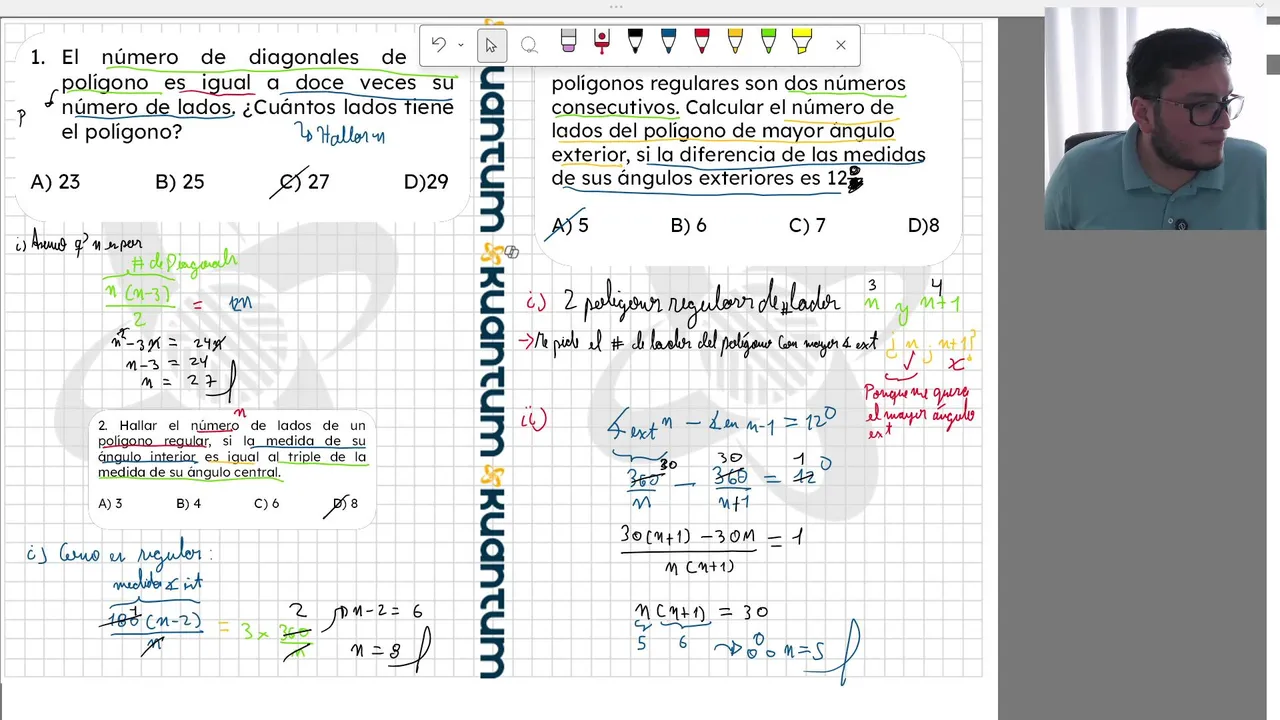 1. El número de diagonales de
polígono es igual a doce veces su
número de lados. ¿Cuántos lados tiene
el polígono?
P
Hallar n
A) 23 B) 25 C) 27 D)29
i) Asumo q' n es par
# de Diagonals
n (n-3) / 2 = 12n
n² - 3n = 24n
n-3 = 24
n = 27
n
2. Hallar el número de lados de un
polígono regular, si la medida de su
ángulo interior es igual al triple de la
medida de su ángulo central.
A) 3 B) 4 C) 6 D) 8
i) Como es regular:
medida ∡ int
180 (n-2) / n = 3 × 360 / n
1 2
n-2 = 6
n = 8
KUANTUM
KUANTUM
KUANTUM
polígonos regulares son dos números
consecutivos. Calcular el número de
lados del polígono de mayor ángulo
exterior, si la diferencia de las medidas
de sus ángulos exteriores es 12°
A) 5 B) 6 C) 7 D)8
3 4
i) 2 polígonos regulares de # lados n y n+1
→ Me pide el # de lados del polígono con mayor ∡ ext ¿ n ; n+1?
✓ x
Porque me quiere
el mayor ángulo
ext
ii) ∡ext n - ∡ en n-1 = 12°
30 30 1
360 / n - 360 / n+1 = 12°
30(n+1) - 30n / n(n+1) = 1
n (n+1) = 30
5 6 → ∴ n = 5